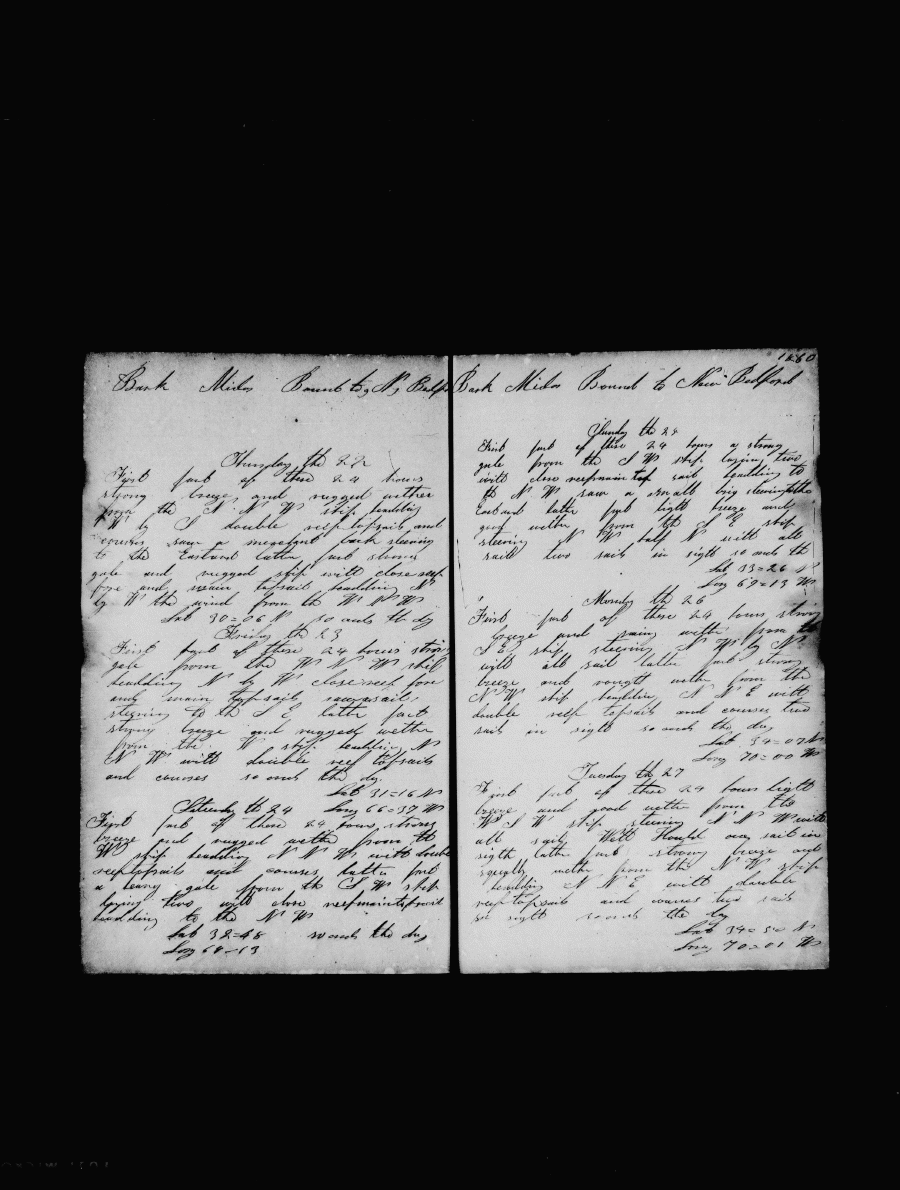 Bark Midas Bound to N, Bedfo
Thursday the 22
First part of these 24 hours
strong breeze and rugged wether
from the N N W ship headding
W by S double reef topsails and
courses saw a merchant bark steering
to the Eastard latter part strong
gale and rugged ship with close reef
fore and main topsail headding N
by W the wind from the W N W
Lat 30=06 N so ends the dy
Friday the 23
First part of these 24 hours strong
gale from the W N W ship
headding N by W close reef fore
and main topsails saw a sail
steering to the S E latter part
strong breeze and rugged wether
from the W ship headding N
N W with double reef topsails
and courses so ends the dy
Lat 31=16 N
Long 66=37 W
Saterday the 24
First part of these 24 hours strong
breeze and rugged wether from the
W ship headding N N W with double
reef topsails and courses latter part
a heavy gale from the S W ship
laying two with close reef main topsail
headding to the N W
Lat 32=48 so ends the day
Long 68=13
1860
Bark Midas Bound to New Bedford
Sunday the 25
First part of these 24 hours a strong
gale from the S W ship laying two
with close reef main top sail headding to
the N W saw a small brig steering to the
Eastard latter part light breeze and
good wether from the S E ship
steering N W half N with all
sail two sail in sigth so ends the
Lat 33=26 N
Long 69=13 W
Monday the 26
First part of these 24 hours strong
breeze and rainy wether from the
S E ship steering N W by N
with all sail latter part strong
breeze and rought wether from the
N W ship headding N N E with
double reef topsails and courses two
sail in sigth so ends the day
Lat 34=07 N
Long 70=00 W
Tuesday the 27
First part of these 24 hours light
breeze and good wether from the
W S W ship steering N N W with
all sail sail in
sigth latter part strong breeze and
squally wether from the N W ship
headding N N E with double
reef topsails and courses two sail
in sigth so ends the day
Lat 34=50 N
Long 70=01 W